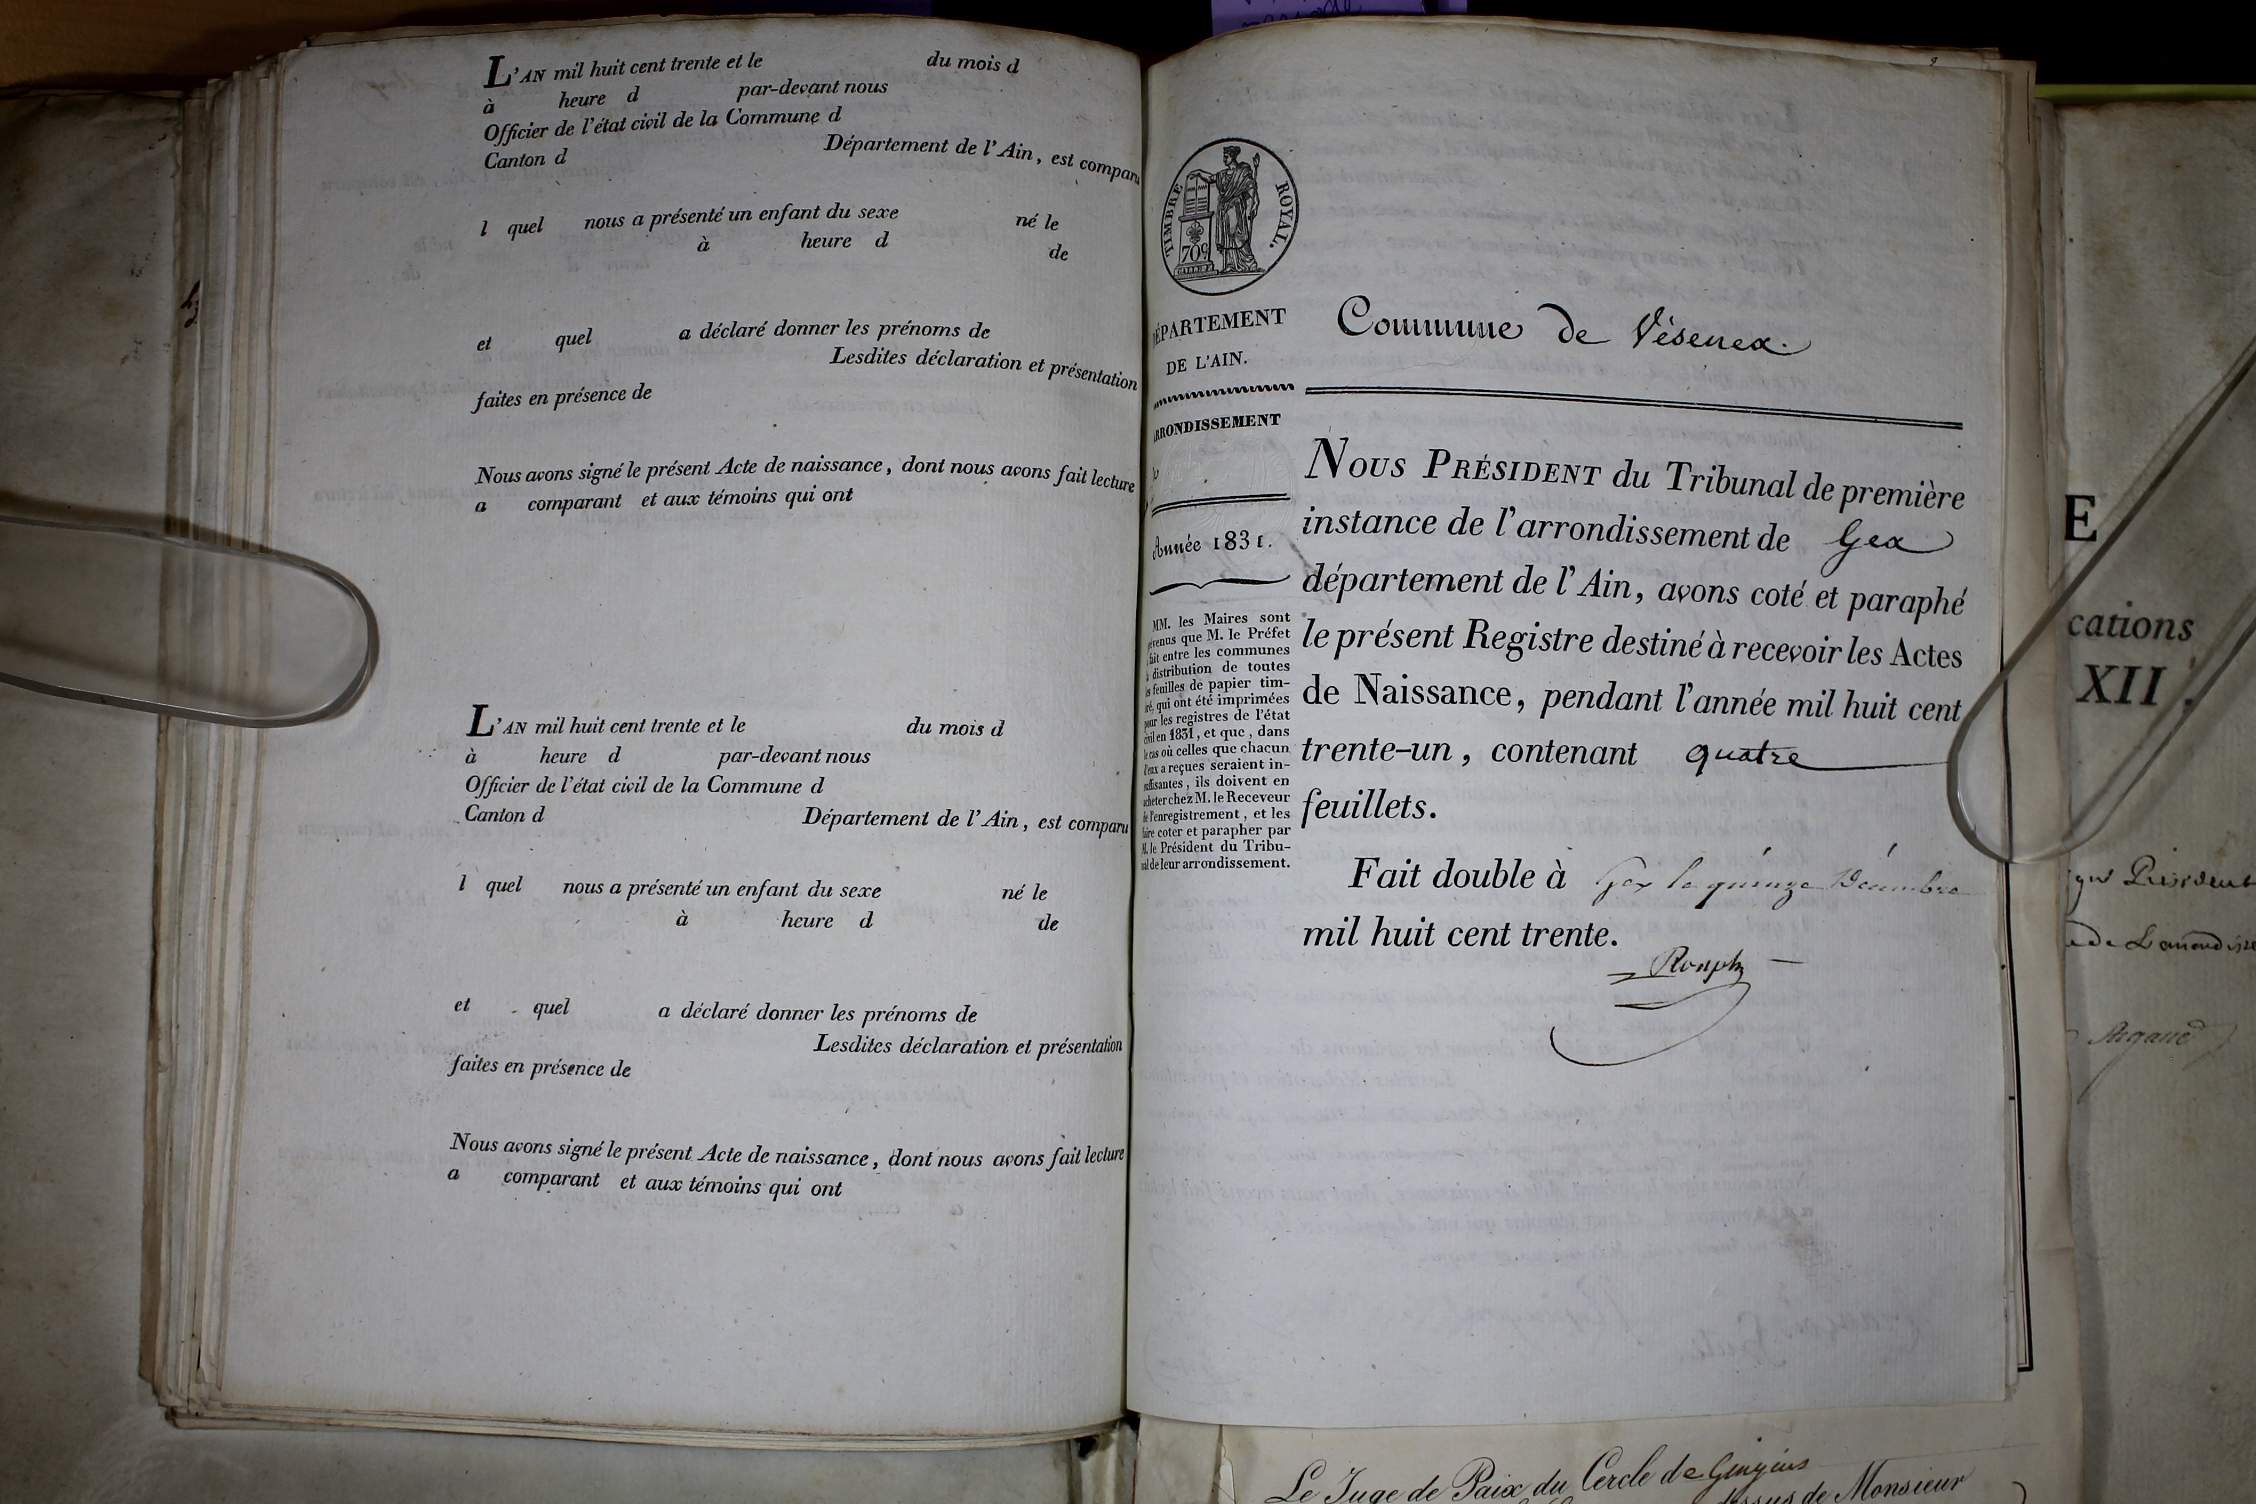 L'AN mil huit cent trente et le du mois d
à heure d par-devant nous
Officier de l'état civil de la Commune d
Canton d Département de l'Ain, est comparu
l quel nous a présenté un enfant du sexe né le
à heure d de
et quel a déclaré donner les prénoms de
Lesdites déclaration et présentation
faites en présence de
Nous avons signé le présent Acte de naissance, dont nous avons fait lecture
a comparant et aux témoins qui ont
L'AN mil huit cent trente et le du mois d
à heure d par-devant nous
Officier de l'état civil de la Commune d
Canton d Département de l'Ain, est comparu
l quel nous a présenté un enfant du sexe né le
à heure d de
et quel a déclaré donner les prénoms de
Lesdites déclaration et présentation
faites en présence de
Nous avons signé le présent Acte de naissance, dont nous avons fait lecture
a comparant et aux témoins qui ont
TIMBRE ROYAL.
70c
DÉPARTEMENT
DE L'AIN.
ARRONDISSEMENT
Année 1831.
MM. les Maires sont
prévenus que M. le Préfet
fait entre les communes
la distribution de toutes
les feuilles de papier tim-
bré, qui ont été imprimées
pour les registres de l'état
civil en 1831, et que, dans
le cas où celles que chacun
d'eux a reçues seraient in-
suffisantes, ils doivent en
acheter chez M. le Receveur
de l'enregistrement, et les
faire coter et parapher par
M. le Président du Tribu-
nal de leur arrondissement.
Commune de Vésenex.
NOUS PRÉSIDENT du Tribunal de première
instance de l'arrondissement de Gex
département de l'Ain, avons coté et paraphé
le présent Registre destiné à recevoir les Actes
de Naissance, pendant l'année mil huit cent
trente-un, contenant quatre
feuillets.
Fait double à Gex le quinze Décembre
mil huit cent trente.
E
cations
XII.
Président
Le Juge de Paix du Cercle de Gingins
de Monsieur